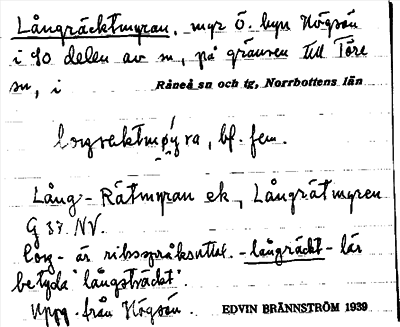 Långräcktmyran, myr Ö. byn Högsön
i SO delen av sn, på gränsen till Töre
sn, i Råneå sn och tg, Norrbottens län
bf. fem.
Lång-Rätmyran ek, Långrätmyren
G 37 NV.
låŋ- är riksspråksuttal. -långräckt- lär
betyda "långsträckt".
Uppg. från Högsön. EDVIN BRÄNNSTRÖM 1939